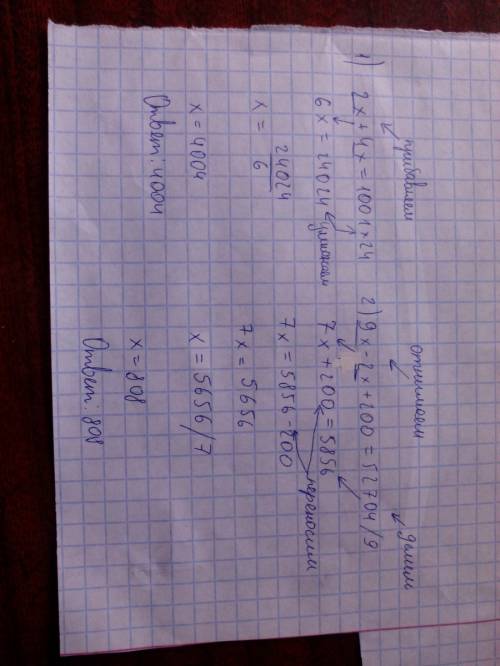 прибавляем
1) 2x + 4x = 1001 × 24
6x = 24024 умножаем
x = 24024/6
x = 4004
Ответ: 4004
отнимаем делим
2) 9x - 2x + 200 = 52704/9
7x + 200 = 5856
переносим
7x = 5856 - 200
7x = 5656
x = 5656/7
x = 808
Ответ: 808